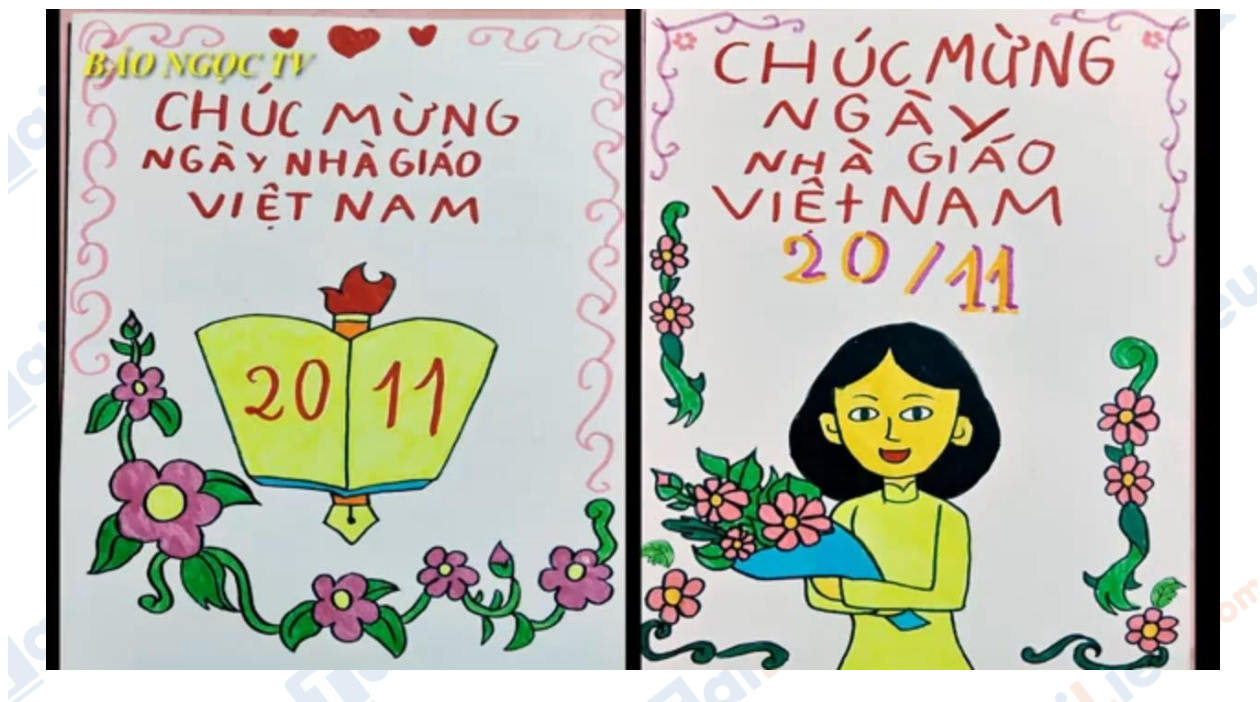 BẢO NGỌC TV
CHÚC MỪNG
NGÀY NHÀ GIÁO
VIỆT NAM
20 11
CHÚC MỪNG
NGÀY
NHÀ GIÁO
VIỆT NAM
20/11